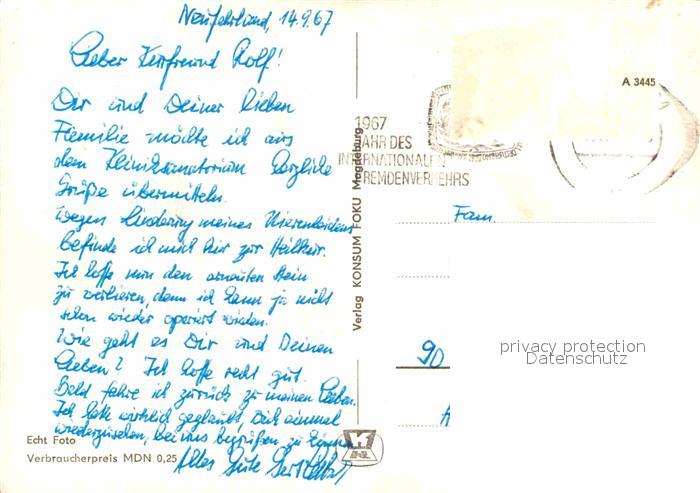 Neufahrland, 14.9.67
Lieber Kurfreund Rolf!
Dir und Deiner lieben
Familie möchte ich aus
dem Kliniksanatorium herzliche
Grüße übermitteln.
Wegen Linderung meines Nierenleidens
befinde ich mich hier zur Heilkur.
Ich hoffe nun den erneuten Stein
zu verlieren, denn ich kann ja nicht
schon wieder operiert werden.
Wie geht es Dir und Deinen
Lieben? Ich hoffe recht gut.
Bald fahre ich zurück zu meinen Lieben.
Ich hatte wirklich geglaubt, Dich einmal
wiederzusehen, bei uns begrüßen zu
Alles Gute
Echt Foto
Verbraucherpreis MDN 0,25
Verlag KONSUM FOKU Magdeburg
A 3445
1967
JAHR DES
INTERNATIONALEN
FREMDENVERKEHRS
Fam.
90
privacy protection
Datenschutz